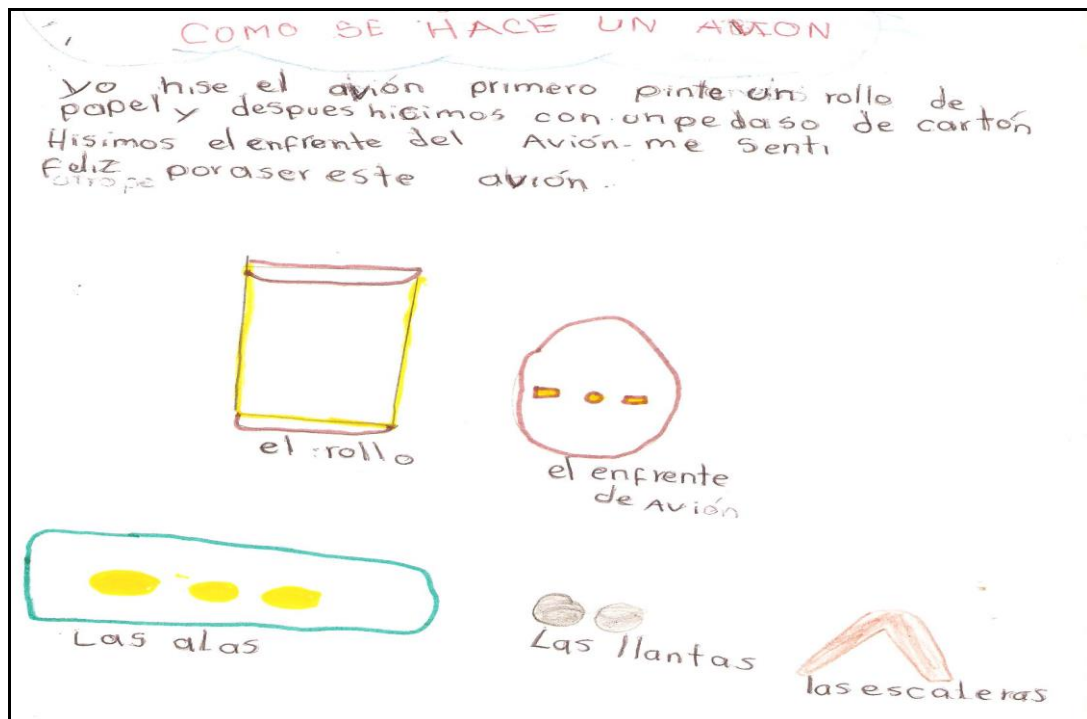 COMO SE HACE UN AVION
yo hise el avión primero pinte un rollo de
papel y despues hicimos con un pedaso de cartón
Hisimos el enfrente del Avión-me Senti
feliz por aser este avión.
el rollo
el enfrente
de Avión
Las alas
Las llantas
las escaleras